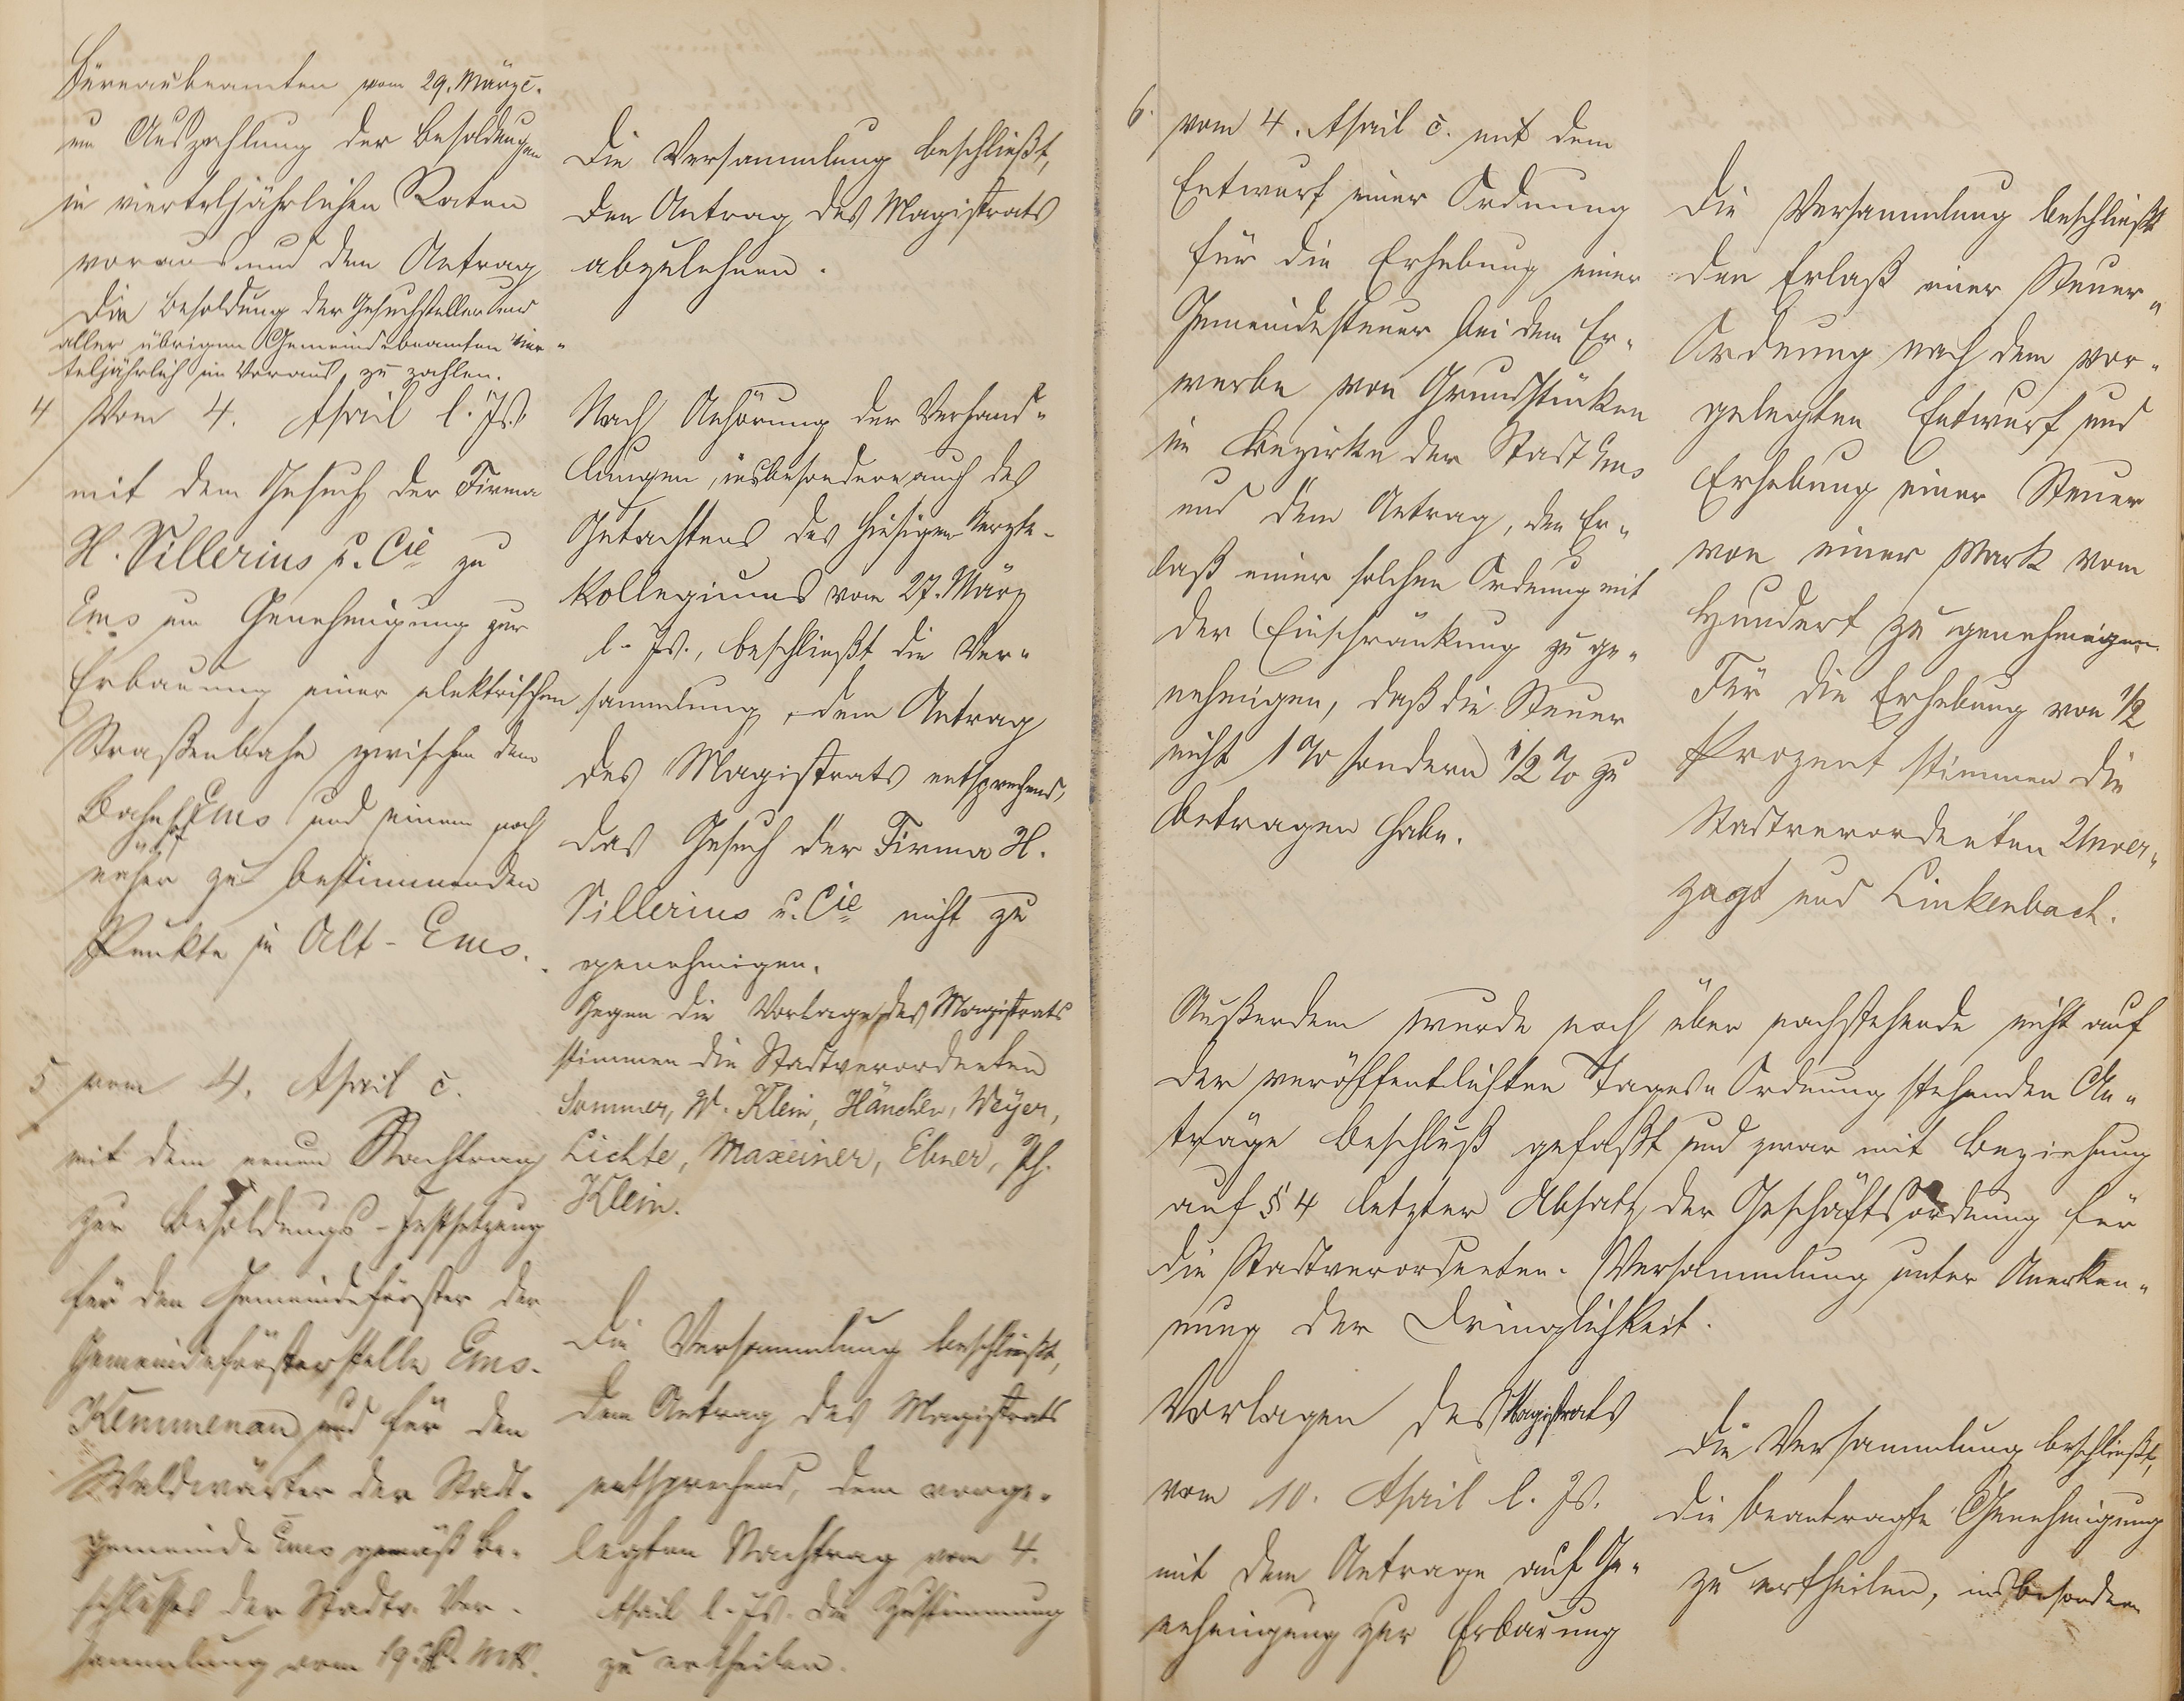 Büreaubeamten vom 29. März c.
um Auszahlung der Besoldungen
in vierteljährlichen Raten
voraus und dem Antrag
die Besoldung der Gesuchsteller und
aller übrigen Gemeindebeamten vier-
teljährlich im Voraus zu zahlen.
Die Versammlung beschließt,
den Antrag des Magistrats
abzulehnen.
4 Vom 4. April l. Js.
mit dem Gesuch der Firma
H. Sillerius u. Cie zu
Ems um Genehmigung zur
Erbauung einer elektrischen
Straßenbahn zwischen dem
Bahnhof Ems und einem noch
näher zu bestimmenden
Punkte in Alt-Ems.
Nach Anhörung der Verhand-
lungen, insbesondere auch des
Gutachtens des hiesigen Aerzte-
kollegiums vom 27. März
l. Js., beschließt die Ver-
sammlung, dem Antrag
des Magistrats entsprechend,
das Gesuch der Firma H.
Sillerius u. Cie nicht zu
genehmigen.
Gegen die Vorlage des Magistrats
stimmen die Stadtverordneten
Sommer, W. Klein, Hänchen, Weyer,
Lichte, Maxeiner, Ebner, Ph.
Klein.
5 vom 4. April c.
mit dem neuen Nachtrag
zur Besoldungs-Festsetzung
für den Gemeindeförster der
Gemeindeförsterstelle Ems-
Kemmenau und für den
Waldwärter der Stadt-
gemeinde Ems gemäß Be-
schlusses der Stadtv. Ver-
sammlung vom 19.
Die Versammlung beschließt,
dem Antrag des Magistrats
entsprechend, dem vorge-
legten Nachtrag vom 4.
April l. Js. die Zustimmung
zu ertheilen.
6. vom 4. April c. mit dem
Entwurf einer Ordnung
für die Erhebung einer
Gemeindesteuer bei dem Er-
werbe von Grundstücken
im Bezirke der Stadt Ems
und dem Antrag, den Er-
laß einer solchen Ordnung mit
der Einschränkung zu ge-
nehmigen, daß die Steuer
nicht 1 % sondern 1/2 % zu
betragen habe.
Die Versammlung beschließt
den Erlaß einer Steuer-
Ordnung nach dem vor-
gelegten Entwurf und
Erhebung einer Steuer
von einer Mark vom
Hundert zu genehmigen.
Für die Erhebung von 1/2
Prozent stimmen die
Stadtverordneten Unver-
zagt und Linkenbach.
Außerdem wurde noch über nachstehende nicht auf
der veröffentlichten Tages-Ordnung stehenden An-
träge Beschluß gefaßt und zwar mit Beziehung
auf § 4 letzter Absatz der Geschäftsordnung für
die Stadtverordneten-Versammlung unter Anerken-
nung der Dringlichkeit.
Vorlagen des Magistrats
vom 10. April l. Js.
mit dem Antrage auf Ge-
nehmigung zur Erbauung
Die Versammlung beschließt,
die beantragte Genehmigung
zu ertheilen, insbesondere